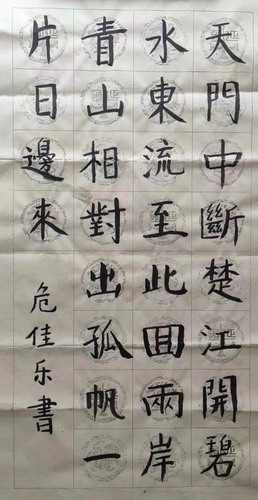 天門中斷楚江開碧
水東流至此囬兩岸
青山相對出孤帆一
片日邊來
危佳乐書